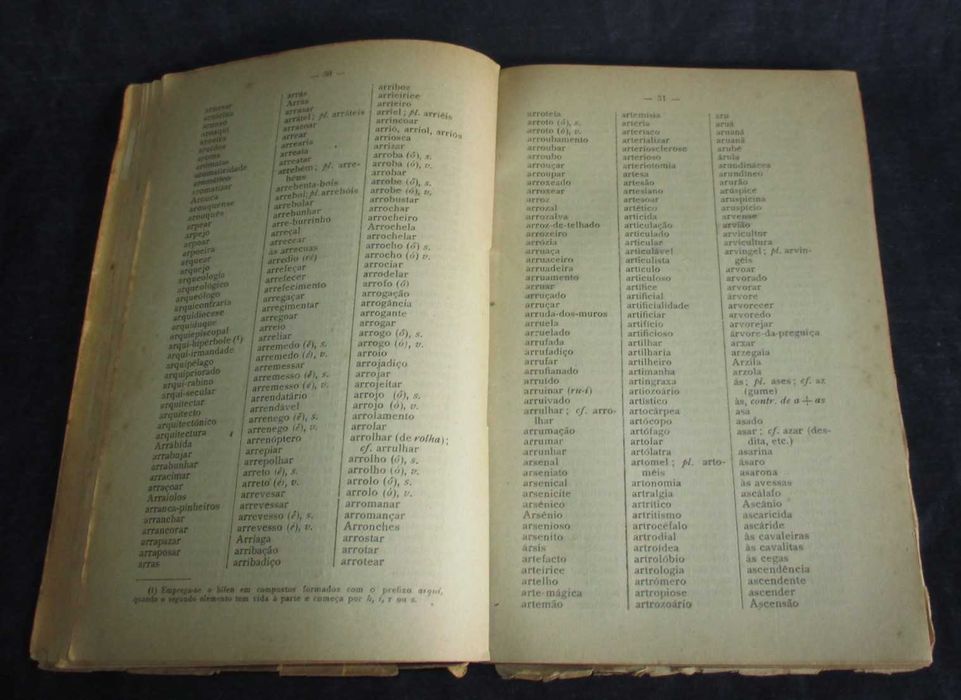 — 30 —
aromatizar
Arouca
arouquense
arouquês
arpear
arpejo
arpoar
arpoeira
arquear
arquejo
arqueologia
arqueológico
arqueólogo
arquiconfraria
arquidiocese
arquiduque
arquiepiscopal
arqui-hipérbole (¹)
arqui-irmandade
arquipélago
arquipriorado
arqui-rabino
arqui-secular
arquitectar
arquitecto
arquitectónico
arquitectura
Arrábida
arrabujar
arrabunhar
arracimar
arraçoar
Arraiolos
arranca-pinheiros
arranchar
arrancorar
arrapazar
arraposar
arras
arrás
Arras
arrasar
arrátel; pl. arráteis
arrazoar
arrear
arrearia
arreata
arreatar
arrebém; pl. arre-
béns
arrebenta-bois
arrebol; pl. arrebóis
arrebolar
arrebunhar
arre-burrinho
arreçal
arrecear
às arrecuas
arredio (ré)
arrefeçar
arrefecer
arrefecimento
arregaçar
arregimentar
arregoar
arreio
arreliar
arremedo (ê), s.
arremedo (é), v.
arremessar
arremesso (ê), s.
arremesso (é), v.
arrendatário
arrendável
arrenego (ê), s.
arrenego (é), v.
arrenóptero
arrepiar
arrepolhar
arreto (ê), s.
arreto (é), v.
arrevesar
arrevessar
arrevesso (ê), s.
arrevesso (é), v.
Arriaga
arribação
arribadiço
arriboz
arrieirice
arrieiro
arriel; pl. arriéis
arrincoar
arrió, arriol, arriós
arriosca
arrizar
arroba (ô), s.
arroba (ó), v.
arrobar
arrobe (ô), s.
arrobe (ó), v.
arrobustar
arrochar
arrocheiro
Arrochela
arrochelar
arrocho (ô) s.
arrocho (ó) v.
arrociar
arrodelar
arrofo (ô)
arrogação
arrogância
arrogante
arrogar
arrogo (ô), s.
arrogo (ó), v.
arroio
arrojadiço
arrojar
arrojeitar
arrojo (ô), s.
arrojo (ó), v.
arrolamento
arrolar
arrolhar (de rolha);
cf. arrulhar
arrolho (ô), s.
arrolho (ó), v.
arrolo (ô), s.
arrolo (ó), v.
arromanar
arromançar
Arronches
arrostar
arrotar
arrotear
(1) Emprega-se o hífen em compostos formados com o prefixo arqui,
quando o segundo elemento tem vida à parte e começa por h, i, r ou s.
— 31 —
arroteia
arroto (ô), s.
arroto (ó), v.
arroubamento
arroubar
arroubo
arrouçar
arroupar
arroxeado
arroxear
arroz
arrozal
arrozalva
arroz-de-telhado
arrozeiro
arrózia
arruaça
arruaceiro
arruadeira
arruamento
arruar
arruçado
arruçar
arruda-dos-muros
arruela
arruelado
arrufada
arrufadiço
arrufar
arrufianado
arruído
arruinar (ru-i)
arruivado
arrulhar; cf. arro-
lhar
arrumação
arrumar
arrunhar
arsenal
arseniato
arsenical
arsenicite
arsénico
Arsénio
arsenioso
arsenito
ársis
artefacto
arteirice
artelho
arte-mágica
artemão
artemísia
artéria
arteríaco
arterializar
arteriosclerose
arterioso
arteriotomia
artesa
artesão
artesiano
artesoar
artético
articida
articulação
articulado
articular
articulável
articulista
artículo
articuloso
artífice
artificial
artificialidade
artificiar
artifício
artificioso
artilhar
artilharia
artilheiro
artimanha
artingraxa
artiozoário
artístico
artocárpea
artócopo
artófago
artolar
artólatra
artomel; pl. arto-
méis
artonomia
artralgia
artrítico
artritismo
artrocéfalo
artrodial
artroídea
artrolóbio
artrologia
artrómero
artropiose
artrozoário
aru
aruá
aruanã
aruanã
arubé
árula
arundinácea
arundíneo
arurão
arúspice
aruspicina
aruspício
arvense
arvião
arvicultor
arvicultura
arvingel; pl. arvin-
géis
arvoar
arvorado
arvorar
árvore
arvorecer
arvoredo
arvorejar
árvore-da-preguiça
arxar
arzegaia
Arzila
arzola
ás; pl. ases; cf. az
(gume)
às, contr. de a + as
asa
asado
asar; cf. azar (des-
dita, etc.)
asarina
ásaro
asarona
às avessas
ascálafo
Ascânio
ascaricida
ascáride
às cavaleiras
às cavalitas
às cegas
ascendência
ascendente
ascender
Ascensão